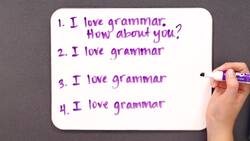 1. I love grammar.
How about you?
2. I love grammar
3. I love grammar
4. I love grammar